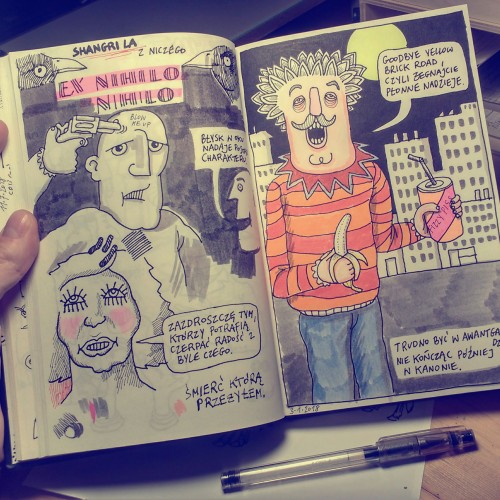 SHANGRI LA
Z NICZEGO
EX NIHILO
NIHILO
BLOW
ME UP
BŁYSK W OKU
NADAJE
CHARAKTERU
ZAZDROSZCZĘ TYM,
KTÓRZY POTRAFIĄ
CZERPAĆ RADOŚĆ Z
BYLE CZEGO.
ŚMIERĆ KTÓRĄ
PRZEŻYŁEM.
GOODBYE YELLOW
BRICK ROAD,
CZYLI ŻEGNAJCIE
PŁONNE NADZIEJE.
TRUDNO BYĆ W AWANTGA
NIE KOŃCZĄC PÓŹNIEJ
W KANONIE.
3-1-2018